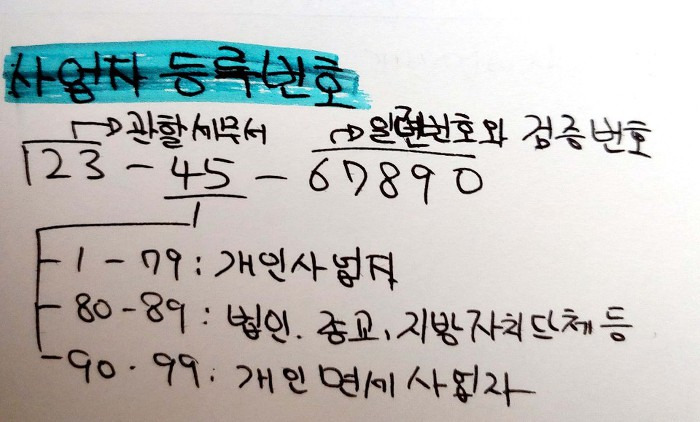 사업자 등록번호
→관할세무서 →일련번호와 검증번호
123 - 45 - 67890
- 1 - 79 : 개인사업자
- 80 - 89 : 법인. 종교, 지방자치단체 등
- 90 · 99 : 개인 면세사업자